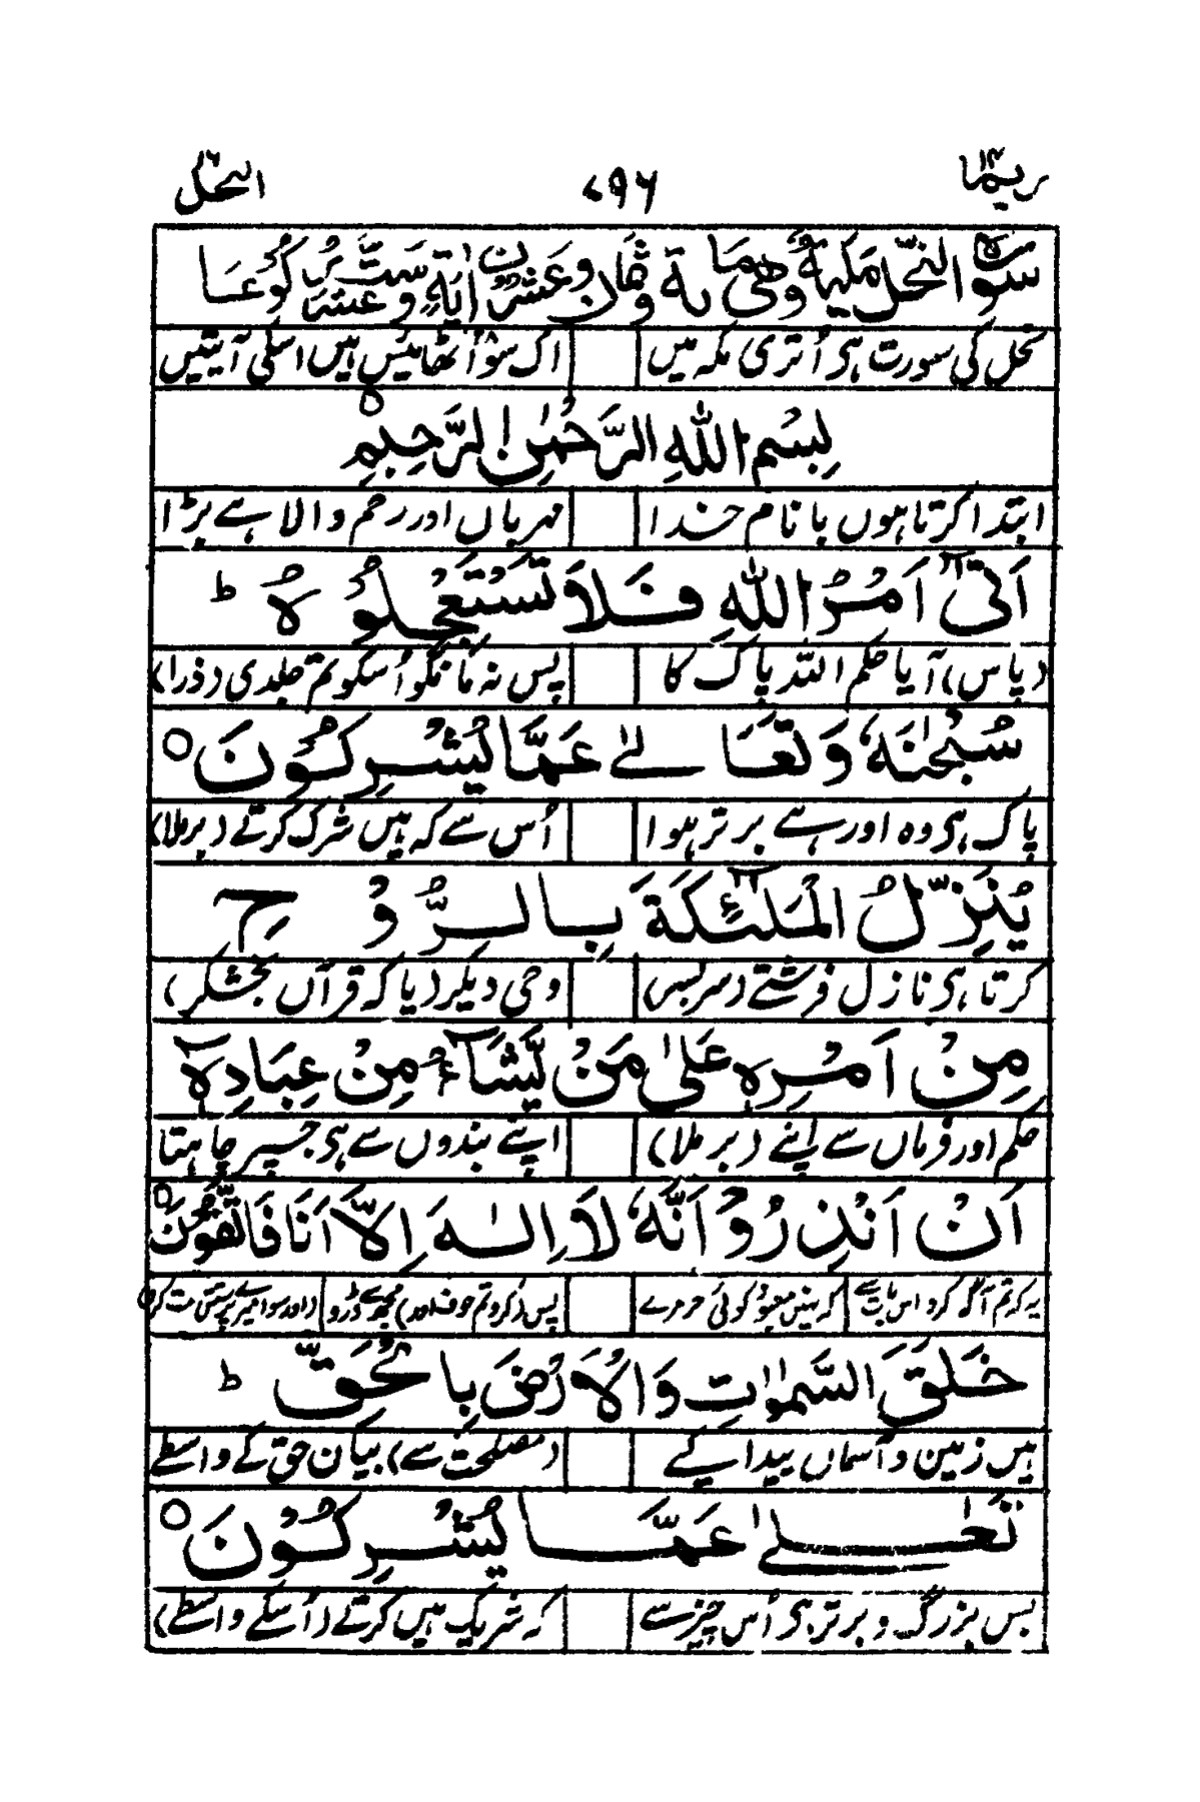 ربما ۱۴ ۷۹۶ النحل ۱۶
سُورَةُ النَّحْلِ مَكِّيَّةٌ وَهِيَ مِائَةٌ وَثَمَانٍ وَعِشْرُوْنَ اٰيَةً وَسِتَّ عَشَرَ رُكُوْعًا
نحل کی سورت ہی اُتری مکہ میں اک سو اُٹھائیس ہیں اسکی آیتیں
بِسْمِ اللّٰهِ الرَّحْمٰنِ الرَّحِيْمِ
ابتدا کرتا ہوں با نام خدا مہرباں اور رحم والا ہے بڑا
اَتٰىٓ اَمْرُ اللّٰهِ فَلَا تَسْتَعْجِلُوْهُ ط
(پاس) آیا حکم اللہ پاک کا پس نہ مانگو اُسکو تم جلدی (ذرا)
سُبْحٰنَهٗ وَتَعَالٰى عَمَّا يُشْرِكُوْنَ ○
پاک ہی وہ اور ہے برتر ہوا اُس سے کہ ہیں شرک کرتے (برملا)
يُنَزِّلُ الْمَلٰٓئِكَةَ بِالرُّوْحِ
کرتا ہی نازل فرشتے (سربسر) وحی دیکر (یا کہ قرآں بخشکر)
مِنْ اَمْرِهٖ عَلٰى مَنْ يَّشَآءُ مِنْ عِبَادِهٖٓ
حکم اور فرماں سے اپنے (برملا) اپنے بندوں سے ہی جسپر چاہتا
اَنْ اَنْذِرُوْٓا اَنَّهٗ لَآ اِلٰهَ اِلَّآ اَنَا فَاتَّقُوْنِ ○
یہ کہ تم آگہ کرو اس بات سے کہ نہیں معبود کوئی جز مرے پس (کرو تم خوف اور) مجھسے ڈرو (اور سوا میرے پرستش مت کرو)
خَلَقَ السَّمٰوٰتِ وَالْاَرْضَ بِالْحَقِّ ط
ہیں زمین و آسماں پیدا کیے (مصلحت سے) بیکان حق کے واسطے
تَعٰلٰى عَمَّا يُشْرِكُوْنَ ○
بس بزرگ و برتر ہی اُس چیز سے کہ شریک ہیں کرتے (اُسکے واسطے)